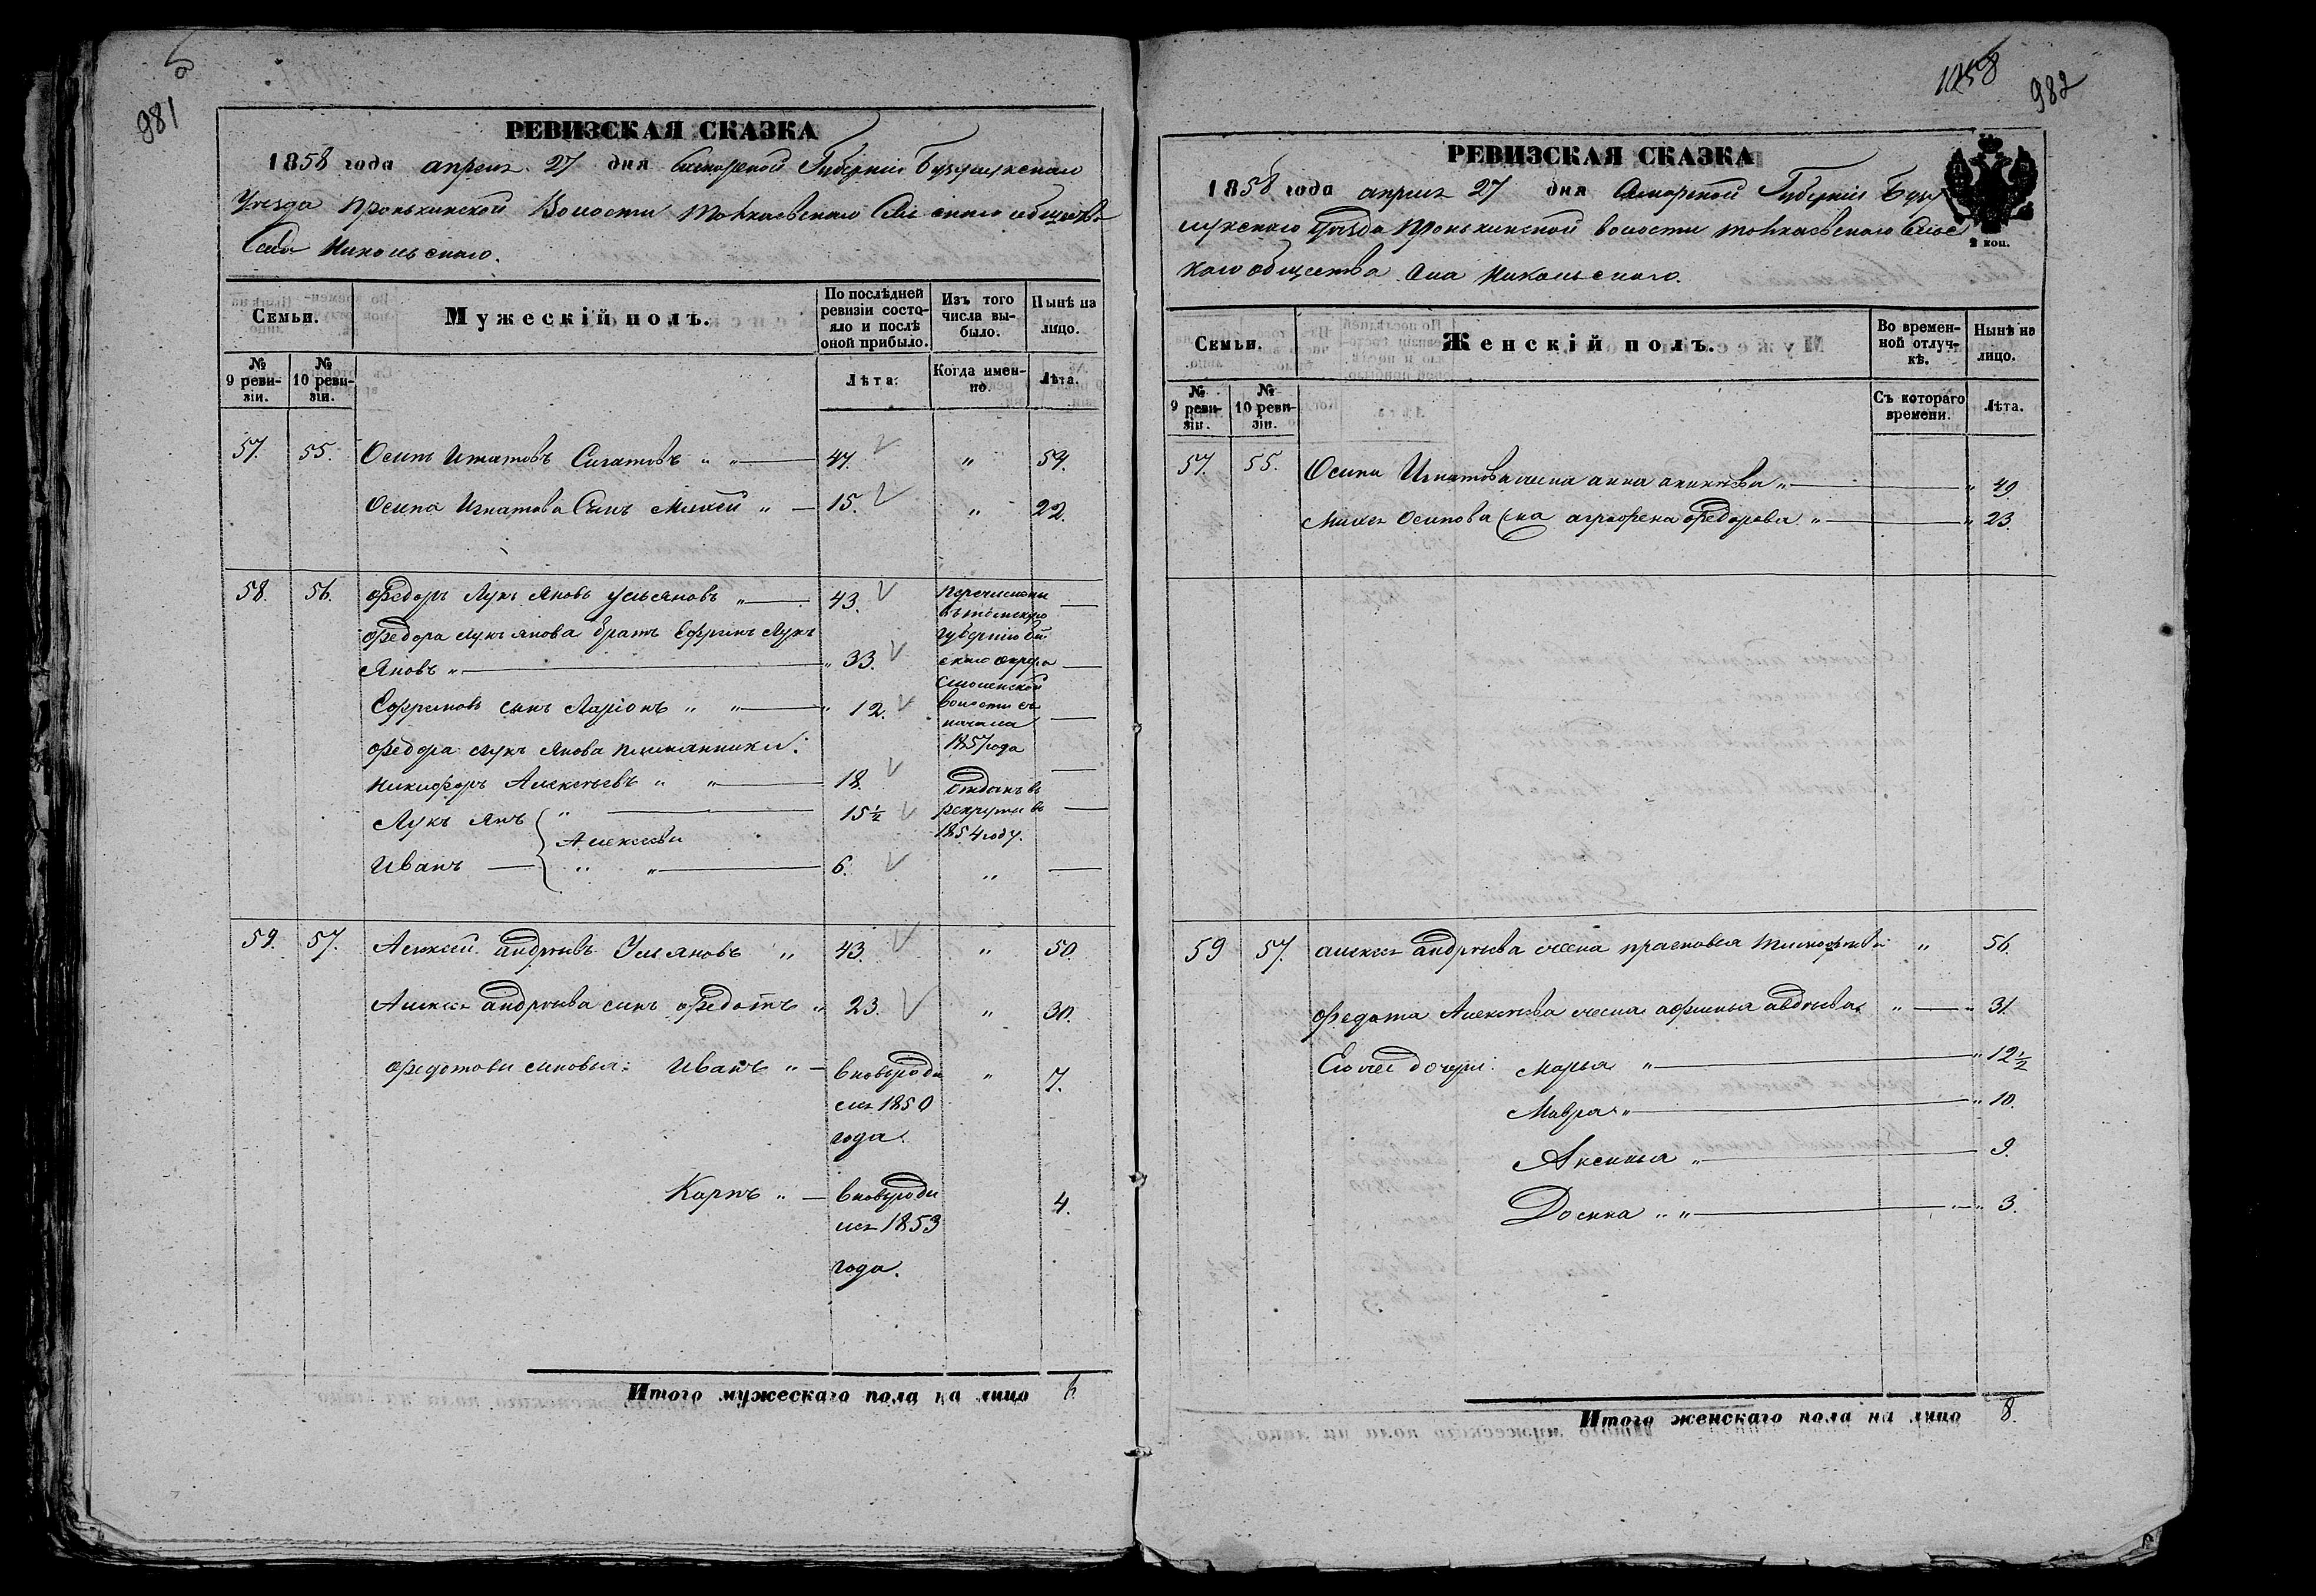 981
РЕВИЗСКАЯ СКАЗКА
1858 года апреля 27 дня Самарской Губерніи Бузулукскаго
Уезда Пронькинской Волости Сельскаго общества
Села Никольскаго.
Семьи.
Мужескій полъ.
По послѣдней ревизіи состояло и послѣ оной прибыло.
Изъ того числа выбыло.
Нынѣ на лицо.
№ 9 ревизіи.
№ 10 ревизіи.
Лѣта.
Когда именно.
Лѣта.
57. 55. Осипъ Игнатовъ " " 47. " 54.
Осипа Игнатова Сынъ Михей " 15. " 22.
58. 56. Федоръ Лукъяновъ Ульяновъ " 43. Перечислены
въ томскую
Федора Лукъянова братъ Ефримъ Лукъ губернію
Яновъ " " 33. скаго округа
Смоленской
Ефримовъ сынъ Ларіонъ " " " 12. волости съ
начала
Федора Лукъ Янова племянники: 1857 года
Никифоръ Алексѣевъ " " 18. Отданъ въ
Лукъ Янъ " 15½ рекруты въ
Алексеевы 1854 году.
Иванъ " " 6. "
59. 57. Алексей Андрѣевъ Ульяновъ " 43. " 50.
Алексея Андрѣева сынъ Федотъ " 23. " 30.
Федотовы сыновья: Иванъ " вновь роди " 7.
лся 1850
года.
Карпъ " вновь роди 4.
лся 1853
года.
Итого мужескаго пола на лицо 6.
1058 982
РЕВИЗСКАЯ СКАЗКА
1858 года апреля 27 дня Самарской Губерніи Бузу
лукскаго Уезда Пронькинской волости Сельс
каго общества Села Никольскаго.
2 коп.
Семьи.
Женскій полъ.
Во временной отлучкѣ.
Нынѣ на лицо.
№ 9 ревизіи.
№ 10 ревизіи.
Съ котораго времени.
Лѣта.
57. 55. Осипа Игнатова жена анна " " 49
Михея Осипова жена аграфена Федорова " " 23.
59 57. алексея андрѣева жена прасковья Тимофѣева " 56.
Федота Алексѣева жена афимья авдѣева " " 31.
Ево же дочери: Марья " " 12½
Мавра " " 10.
Аксинья " 9.
Домна " " " 3.
Итого женскаго пола на лицо 8.